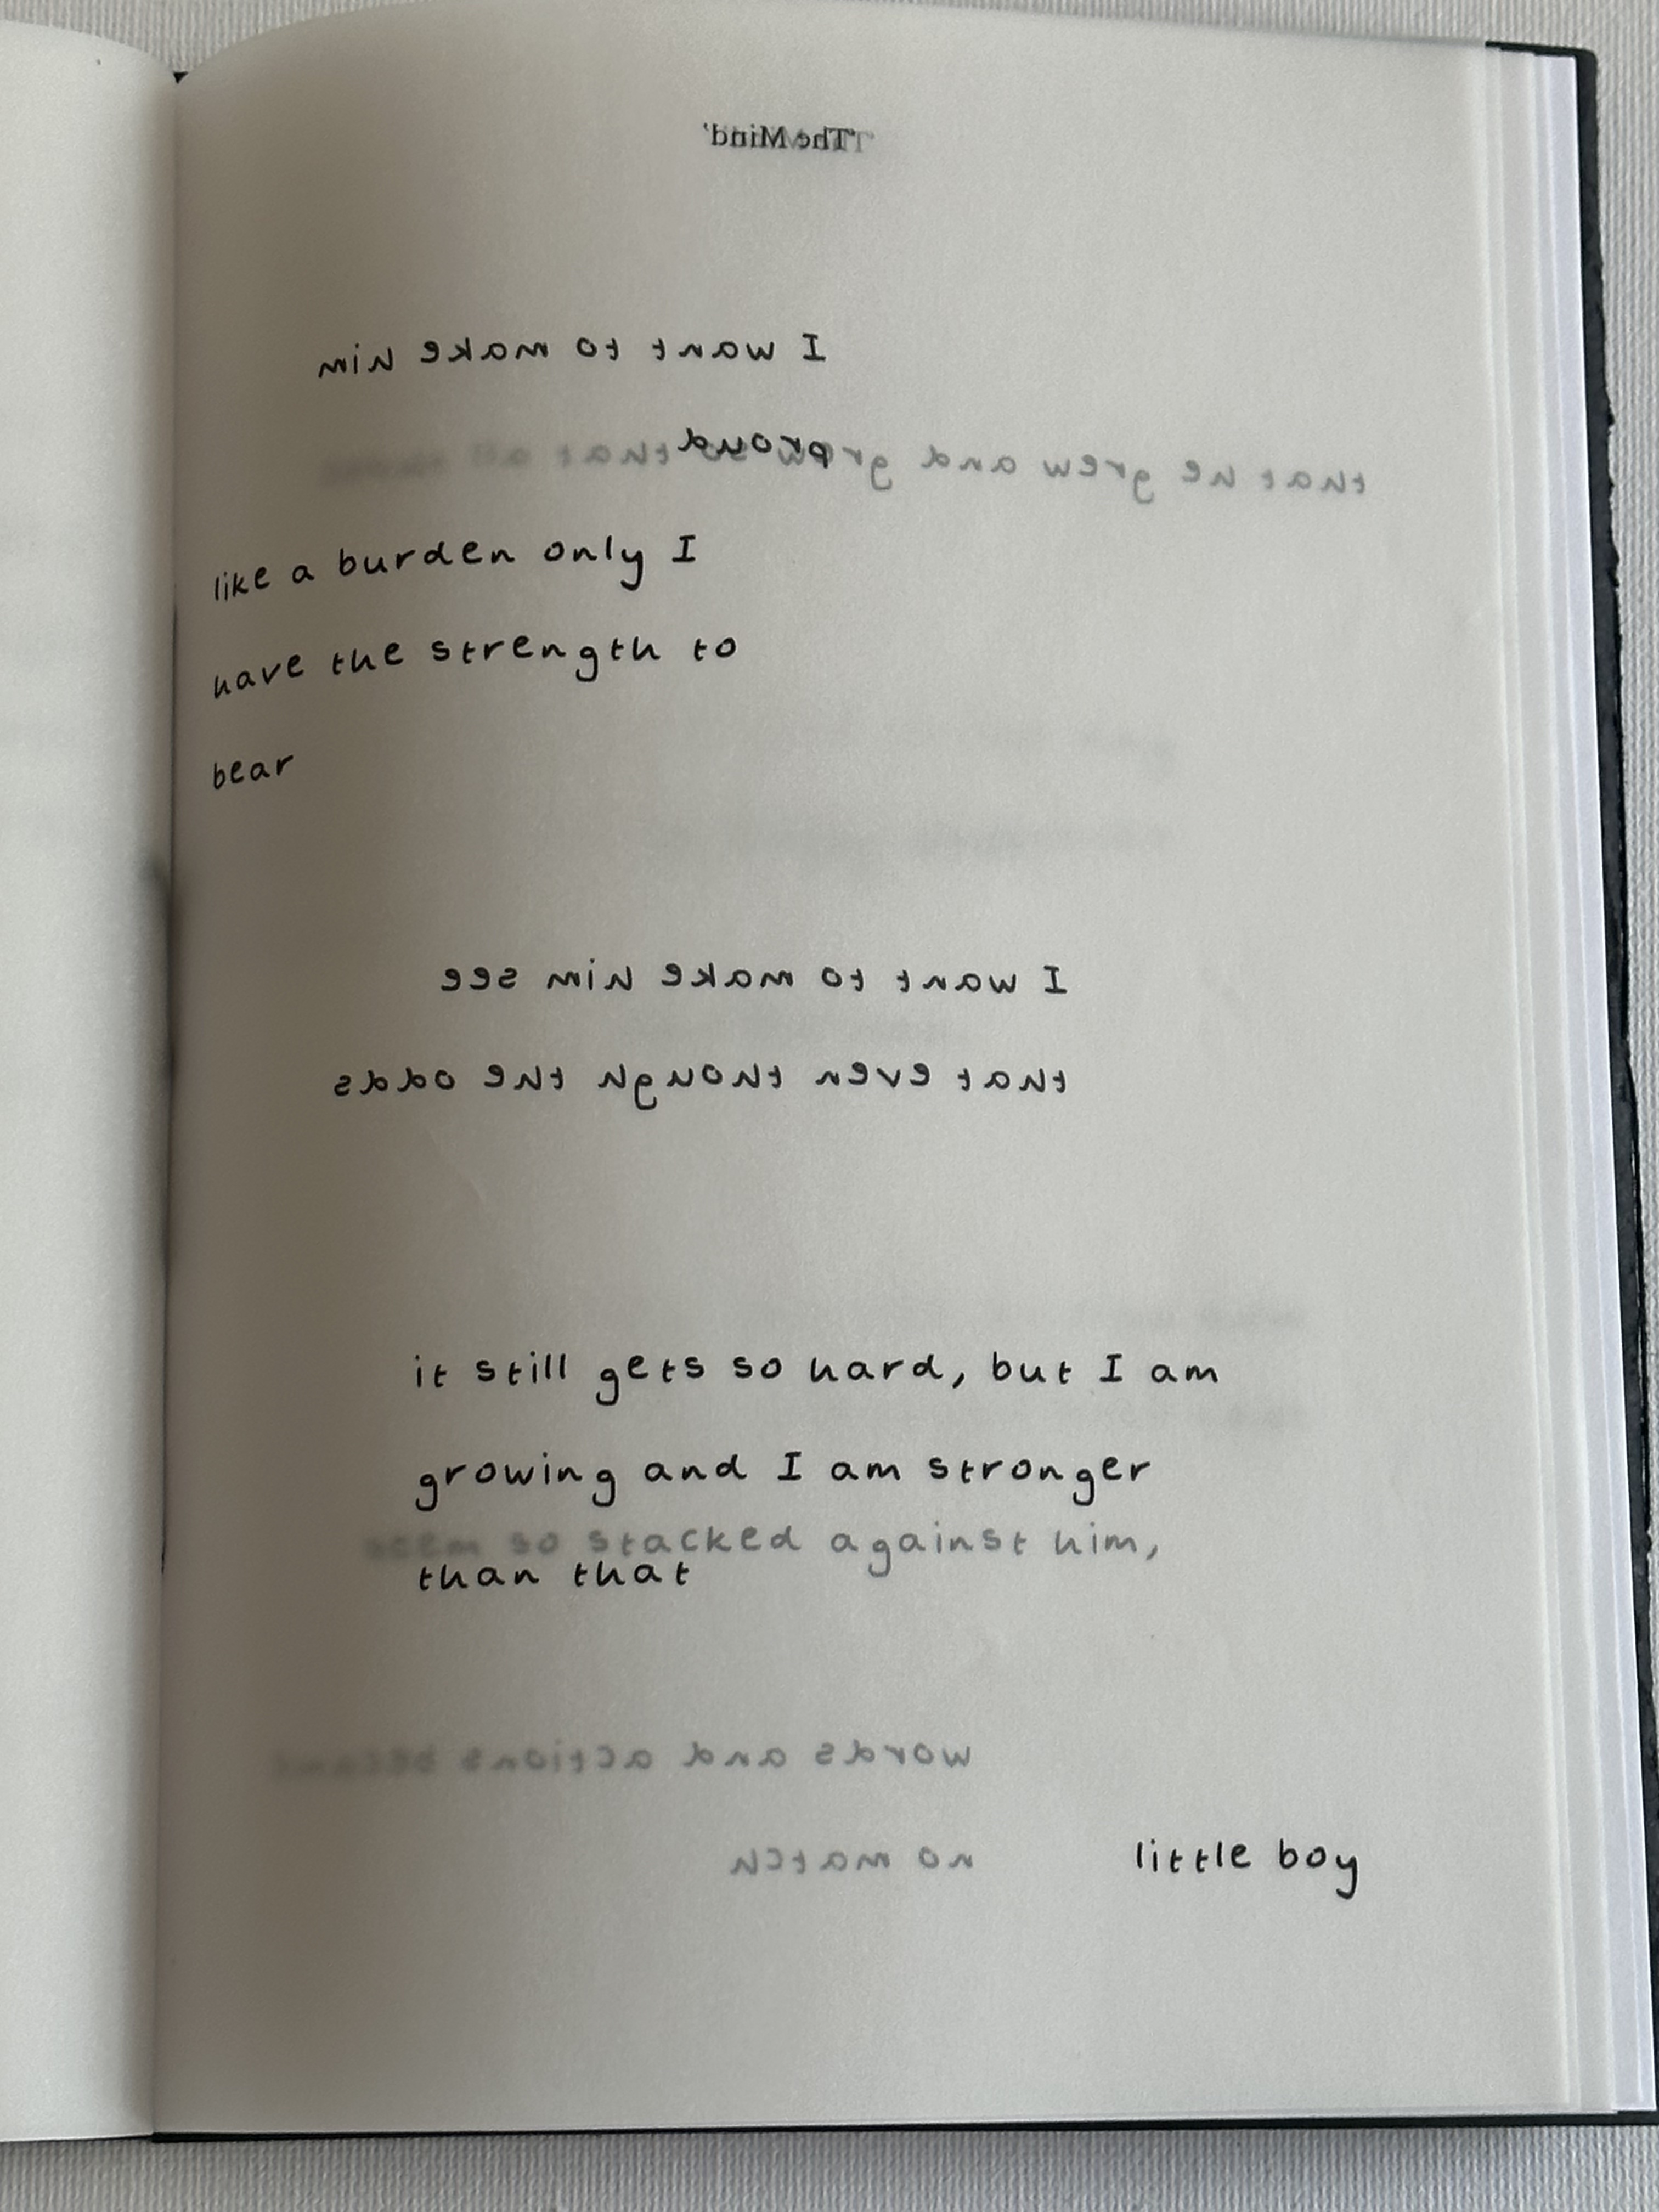 'The Mind'
I want to make him
proud
that he grew and grew so that all
like a burden only I
have the strength to
bear
I want to make him see
that even though the odds
it still gets so hard, but I am
growing and I am stronger
seem so stacked against him,
than that
words and actions became
no match
little boy